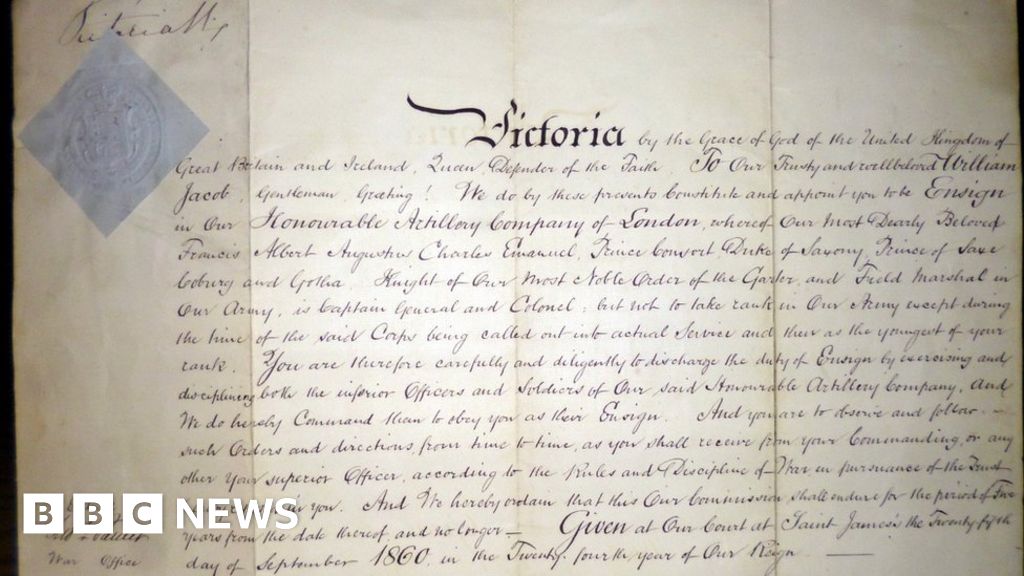 Victoria
Victoria by the Grace of God of the United Kingdom of
Great Britain and Ireland, Queen, Defender of the Faith, To Our Trusty and wellbeloved William
Jacob, Gentleman, Greeting! We do by these presents Constitute and appoint you to be Ensign
in Our Honourable Artillery Company of London, whereof Our Most Dearly Beloved
Francis Albert Augustus Charles Emanuel, Prince Consort, Duke of Saxony, Prince of Saxe
Coburg and Gotha, Knight of Our Most Noble Order of the Garter, and Field Marshal in
Our Army, is Captain General and Colonel; but not to take rank in Our Army except during
the time of the said Corps being called out into actual Service and then as the youngest of your
rank. You are therefore carefully and diligently to discharge the duty of Ensign by exercising and
disciplining both the inferior Officers and Soldiers of Our said Honourable Artillery Company, And
We do hereby Command them to obey you as their Ensign. And you are to observe and follow
such Orders and directions, from time to time, as you shall receive from your Commanding, or any
other Your superior Officer, according to the Rules and Discipline of War in pursuance of the Trust
in you. And We hereby ordain that this Our Commission shall endure for the period of Five
Years from the date thereof, and no longer — Given at Our Court at Saint James's the Twenty fifth
day of September 1860, in the Twenty fourth year of Our Reign
War Office
BBC NEWS